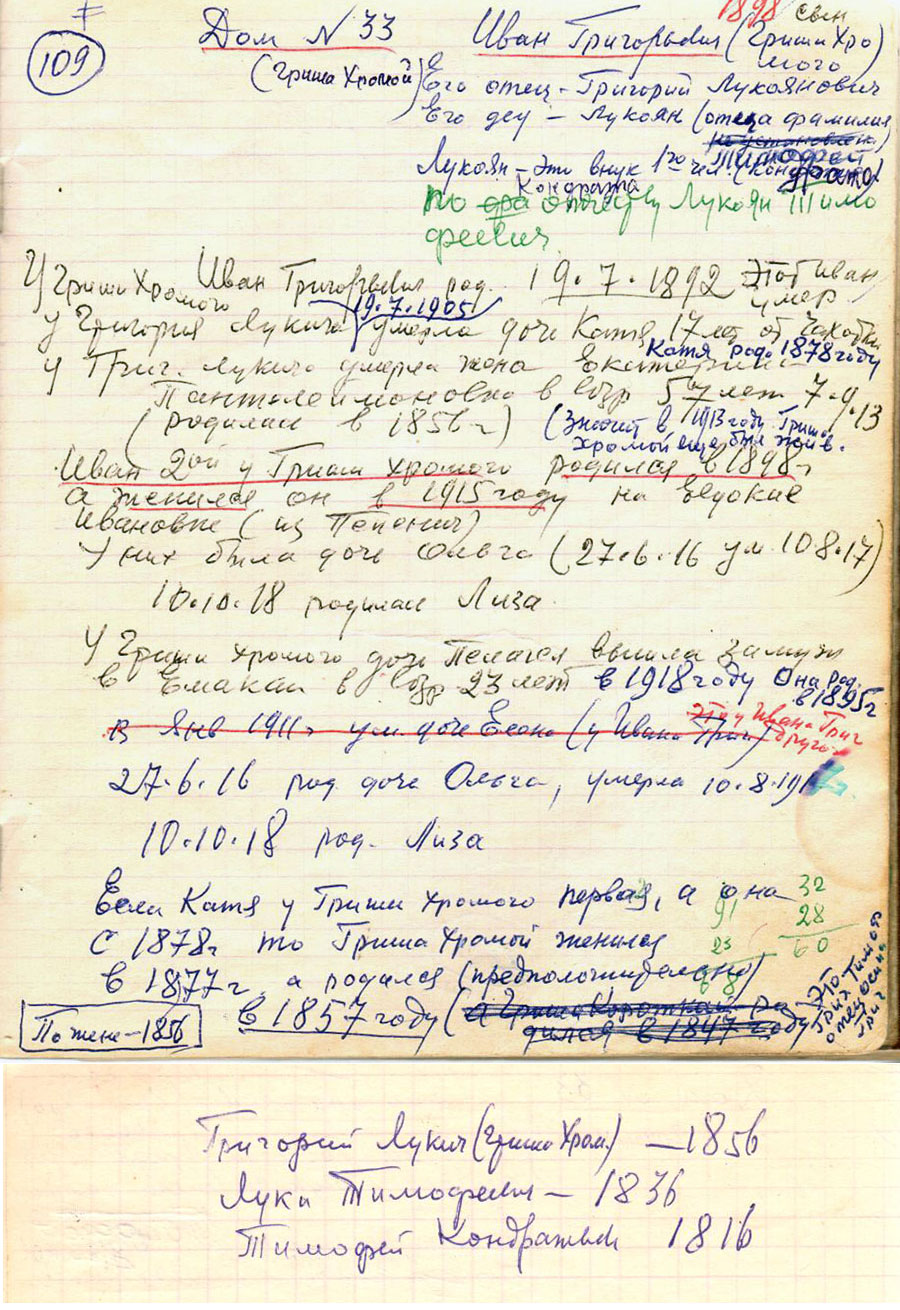 109
Дом N 33
1898
Иван Григорьевич (Гриши Хро
мого
(Гриша Хромой)
Его отец - Григорий Лукоянович
Его дед - Лукоян (отца фамилия
не установлена)
Тимофей
Лукоян - это внук 1го чел. (Конд
Кондрата
то отчеству Лукоян Тимо
феевич
У Гриши Хромого Иван Григорьевич род. 19.7.1892 Этот Иван
умер
19.7.1905
У Григория Лукича умерла дочь Катя 17 лет от Чахотки
Катя род. 1878 году
У Григ. Лукича умерла жена Екатерина
Пантелеймоновна в возр 57 лет 7.9.13
(родилась в 1856 г) (Значит в 1913 году Гриша
Хромой еще был жив.
Иван 2ой у Гриши Хромого родился в 1898г
а женился он в 1915 году на Евдокие
Ивановне (из Пепенич)
У них была дочь Ольга (27.6.16 ум. 10.8.17)
10.10.18 родилась Лиза
У Гриши Хромого дочь Пелагея вышла замуж
в Емакаи в возр 23 лет в 1918 году Она род.
в 1895г
в Янв 1911г ум. дочь (у Ивана Григ)
Это у Ивана Григ
другого
27.6.16 род дочь Ольга, умерла 10.8.191
10.10.18 род. Лиза
Если Катя у Гриши Хромого первая, а она
с 1878г то Гриша Хромой женился
в 1877г а родился (предположительно)
в 1857 году (а Гриша Короткай ро
дился в 1847 году)
32
28
60
91
23
68
По жене - 1856
Это Тимофея
Григ
отец
Григ
Григорий Лукич (Гриша Хром.) — 1856
Лука Тимофеевич — 1836
Тимофей Кондратьевич 1816